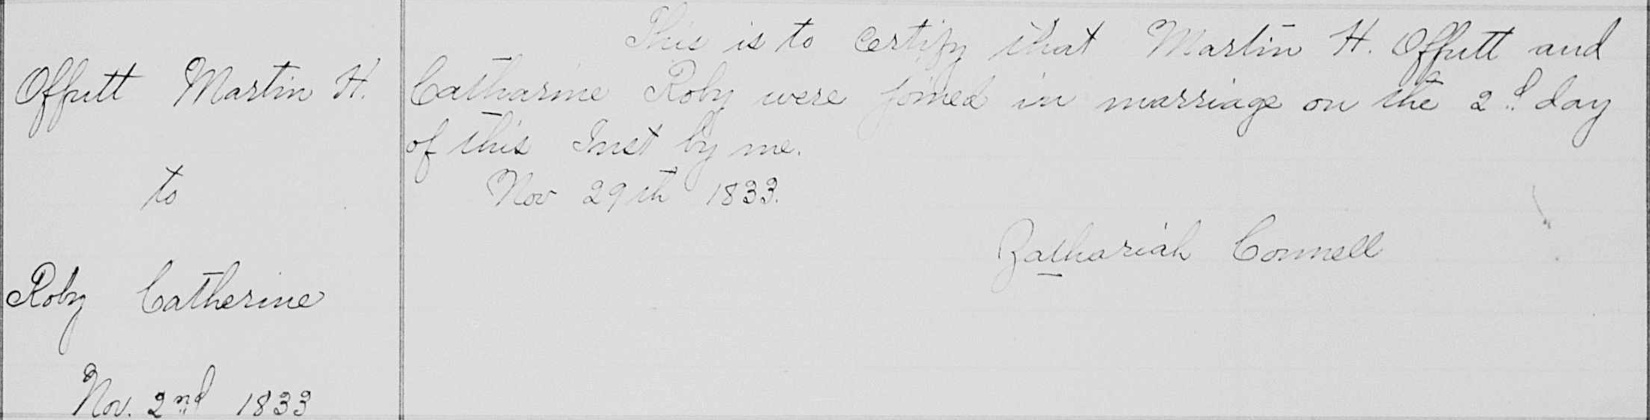 Offutt Martin H.
to
Roby Catherine
Nov. 2nd 1833
This is to certify that Martin H. Offutt and
Catharine Roby were joined in marriage on the 2d day
of this Inst by me.
Nov 29th 1833.
Zathariah Connell